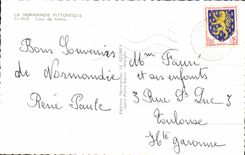 LA NORMANDIE PITTORESQUE
Cour de ferme
Bons Souvenirs
de Normandie
René Paule
Mme Fauré
et ses enfants
3 Rue St Luc 3
Toulouse
Hte Garonne